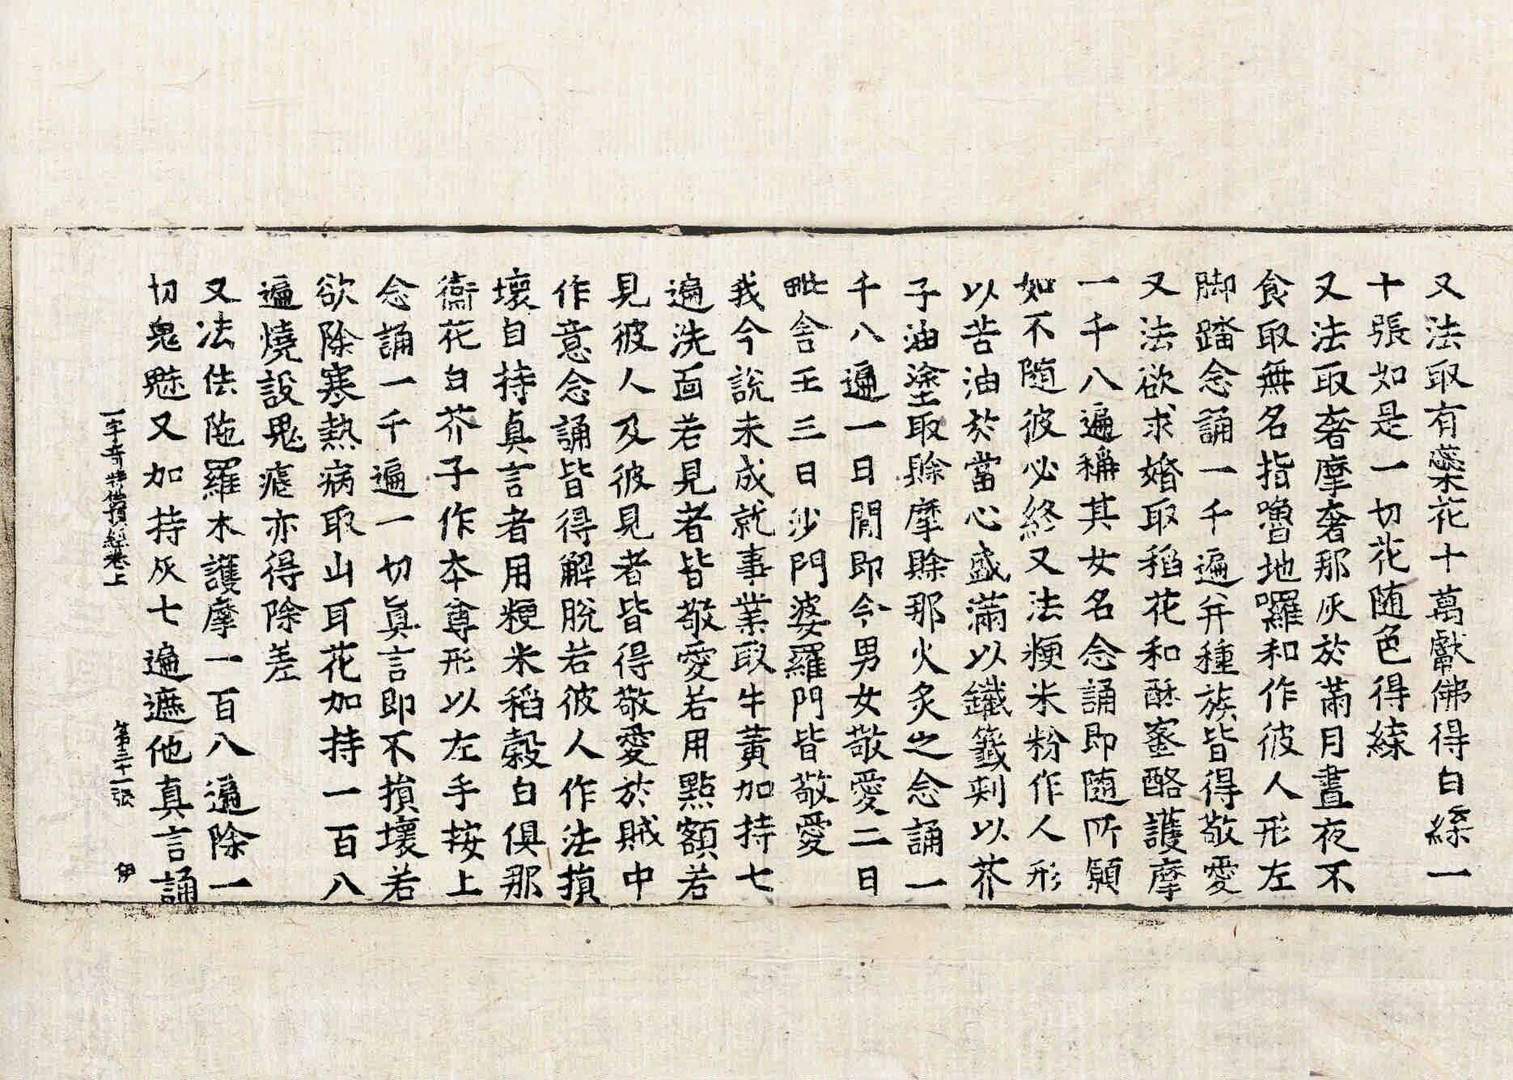 又法取有蘂花十萬獻佛得白緤一
十張如是一切花随色得緤
又法取奢摩奢那灰於滿月晝夜不
食取無名指嚕地囉和作彼人形左
脚踏念誦一千遍并種族皆得敬愛
又法欲求婚取稻花和酥蜜酪護摩
一千八遍稱其女名念誦即隨所願
如不隨彼必終又法粳米粉作人形
以苦油於當心盛滿以鐵籤刺以芥
子油塗取賒摩賒那火炙之念誦一
千八遍一日閒即令男女敬愛二日
毗舍王三日沙門婆羅門皆敬愛
我今說未成就事業取牛黃加持七
遍洗面若見者皆敬愛若用點額若
見彼人及彼見者皆得敬愛於賊中
作意念誦皆得解脫若彼人作法損
壞自持真言者用粳米稻穀白俱那
衛花白芥子作本尊形以左手按上
念誦一千遍一切真言即不損壞若
欲除寒熱病取山耳花加持一百八
遍燒設鬼瘧亦得除差
又法佉陁羅木護摩一百八遍除一
切鬼魅又加持灰七遍遮他真言誦
一字奇特佛頂經卷上 第三十一張 伊